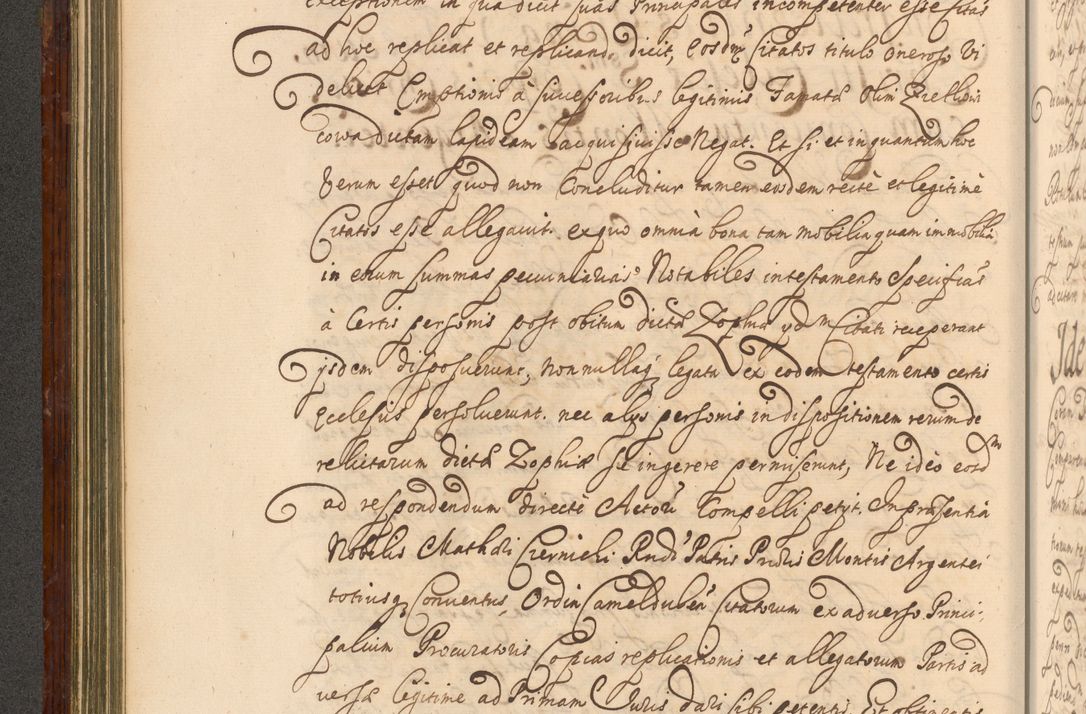 exceptionem in qua dicit suas Principales incompetenter esse Citas
ad hoc replicat et replicans dicit, eosdm Citatos titulo oneroso Vi
delicet Emptionis à successoribus legitimis Famatæ olim
cowa dictam lapideam acquisiuisse Negat. Et si et in quantum hoc
Verum esset quod non Concluditur tamen eosdem recte et legitimè
Citatos esse allegauit. ex quo omnia bona tam mobilia quam immobilia
in enum summas pecuniarias Notabiles in testamento specificas
à Certis personis post obitum dictæ Zophiæ ydm Citati receperant
ijsdem disposuerunt, non nullaq legata Vex eodem testamento certis
Ecclesiis persoluerunt. nec alys personis in dispositionem rerum de
relictarum dictæ Zophiæ se ingerere permiserunt, Ne ideò eosdm
ad respondendum directè Actori Compelli petyt. In præsentia
Nobilis Mathæi Czernicki Rndi Patris Prioris Montis Argentei
totiusq Conuentus Ordin Camelduben Citatorum ex aduerso Princi-
palium Procuratoris Copias replicationis et allegatorum Partis ad
uersæ legitime ad Primam Iuris dari sibi petentis Et obtinentis